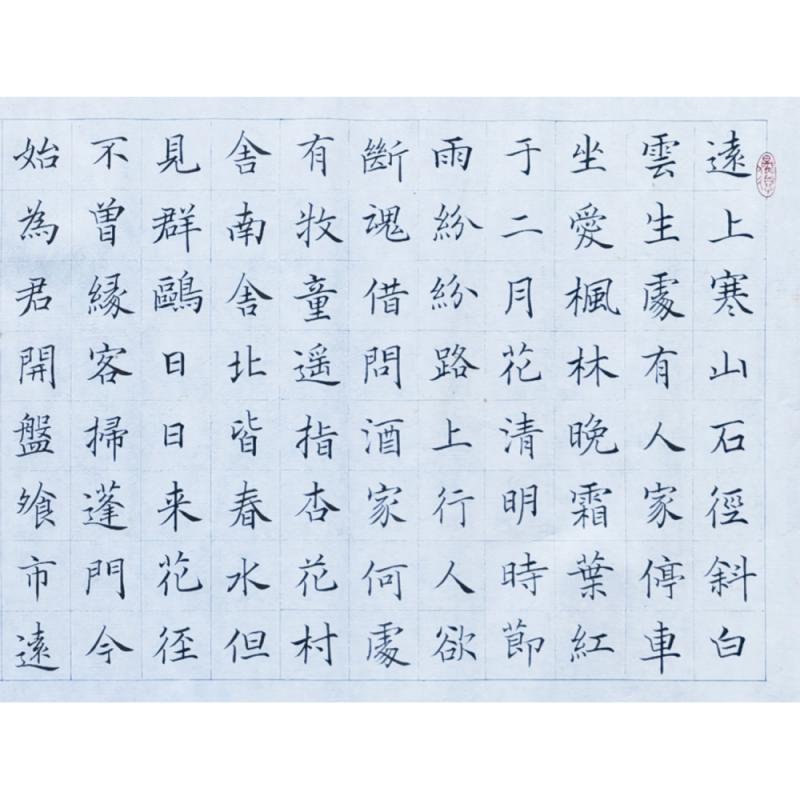 遠上寒山石徑斜白
雲生處有人家停車
坐愛楓林晚霜葉紅
于二月花清明時節
雨紛紛路上行人欲
斷魂借問酒家何處
有牧童遥指杏花村
舎南舎北皆春水但
見群鷗日日来花径
不曽縁客掃蓬門今
始為君開盤飧市遠